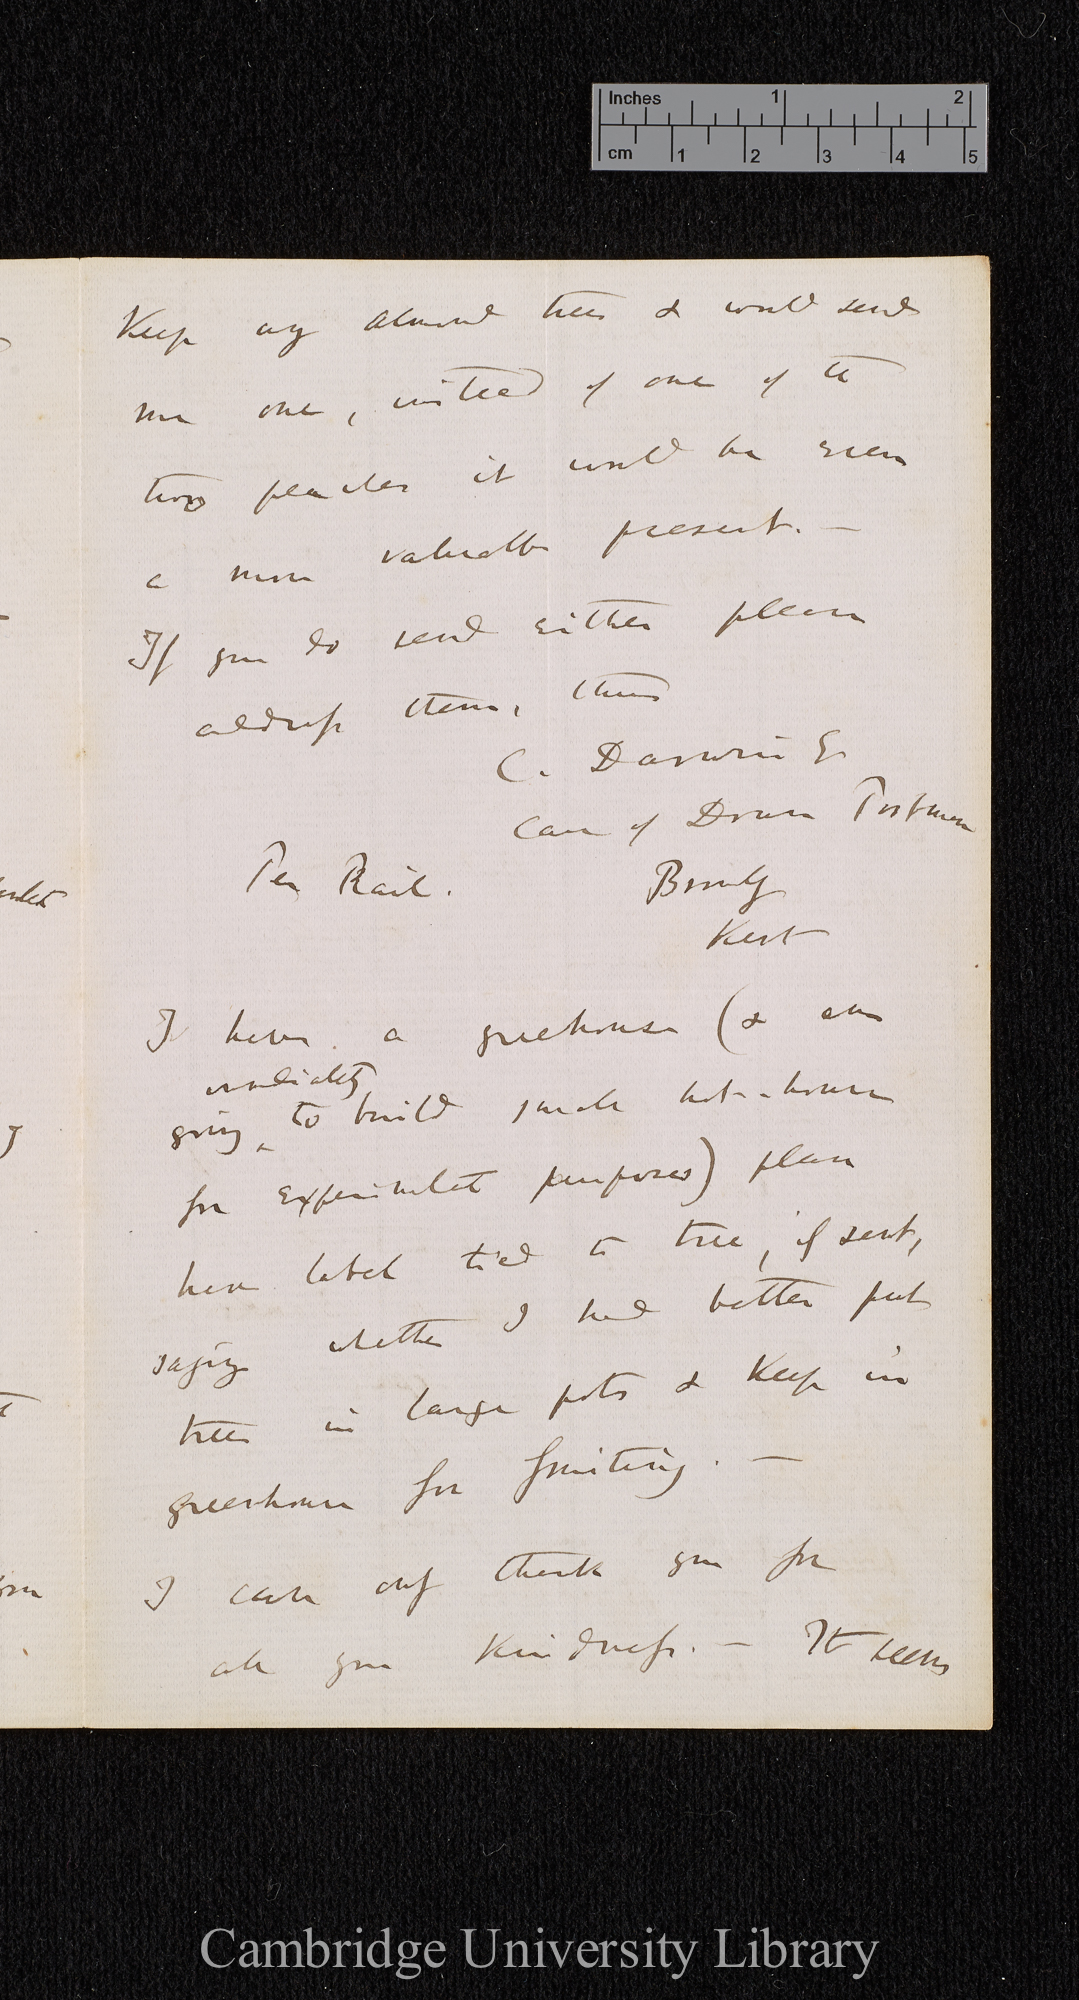 Inches 1 2
cm 1 2 3 4 5
Keep any almond trees & would send
me one, instead of one of the
two peaches it would be even
a more valuable present. —
If you do send either please
address them, thus
C. Darwin Esq
Care of Down Postman
Per Rail. Bromley
Kent
I have a greenhouse (& am
immediately
going ^ to build small hot-house
for experimental purposes) please
have label tied to tree, if sent,
saying whether I had better put
trees in large pots & keep in
greenhouse for fruiting. —
I can only thank you for
all your kindness. — It seems
Cambridge University Library